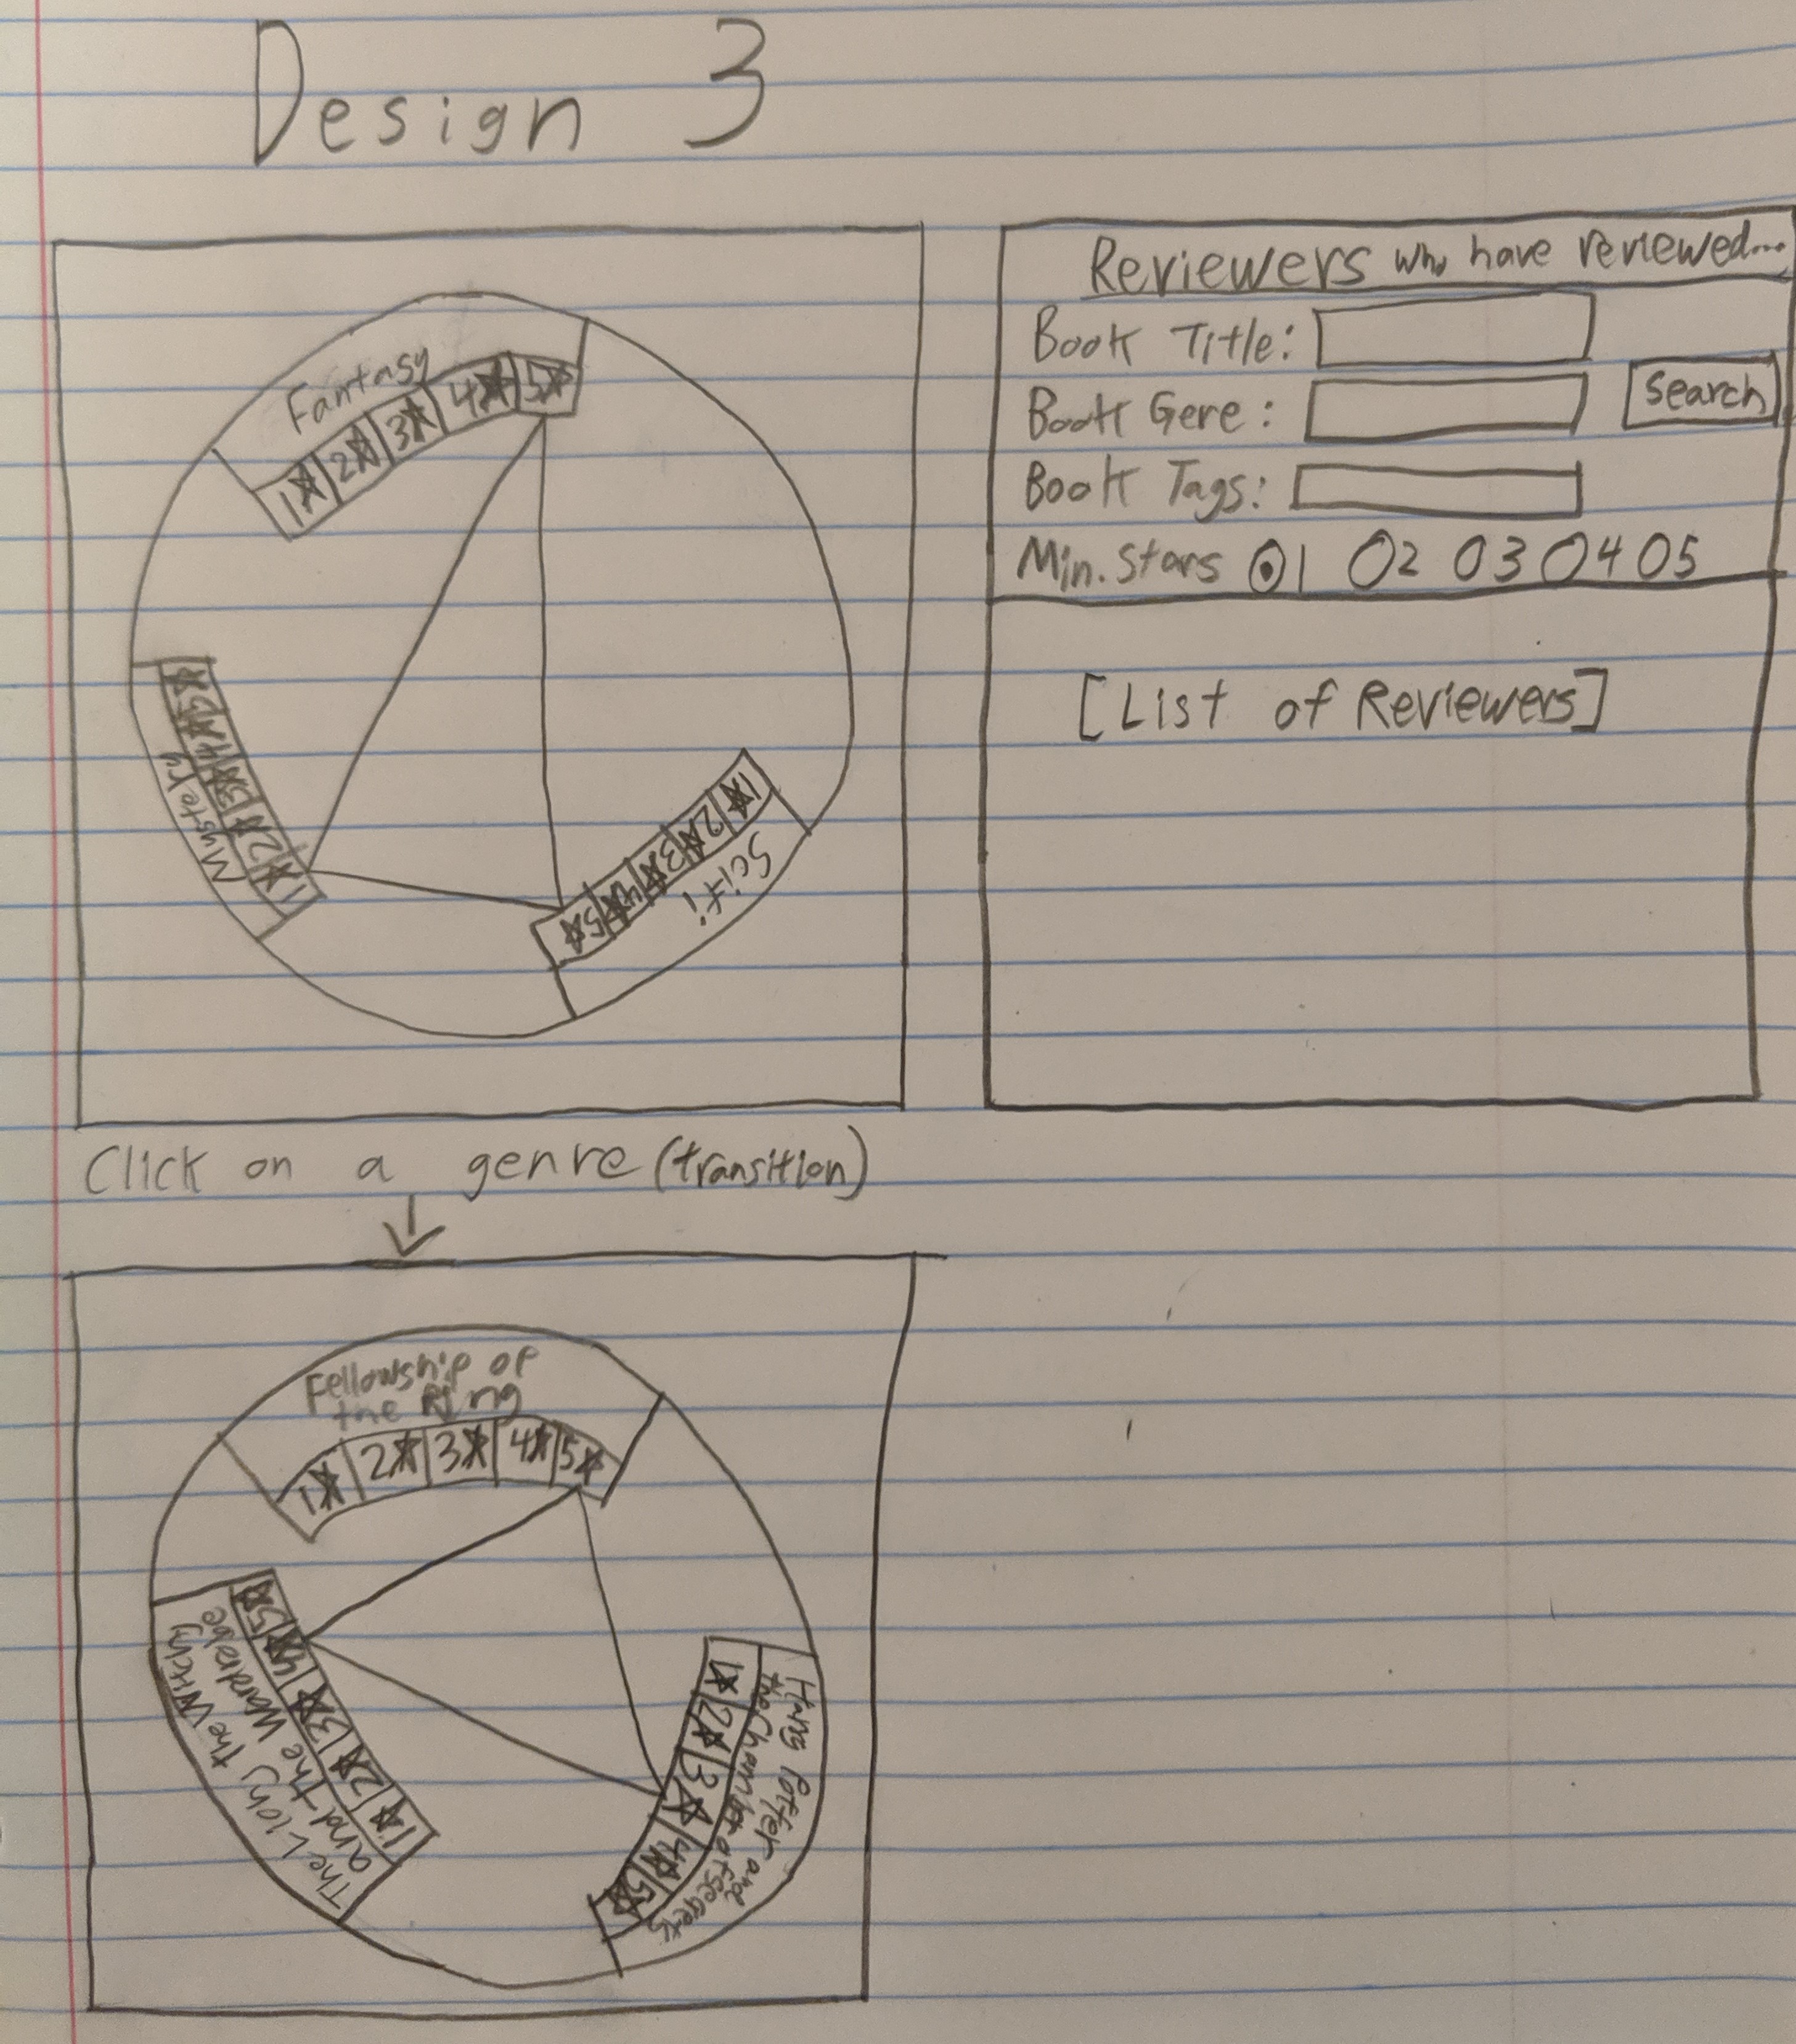 Design 3
Fantasy
1★ 2★ 3★ 4★ 5★
Mystery
5★ 4★ 3★ 2★ 1★
Scifi
1★ 2★ 3★ 4★ 5★
Reviewers who have reviewed...
Book Title:
Book Gere:
Search
Book Tags:
Min. Stars 1 2 3 4 5
[List of Reviewers]
Click on a genre (transition)
Fellowship of
the Ring
1★ 2★ 3★ 4★ 5★
The Lion, the Witch,
and the Wardrobe
5★ 4★ 3★ 2★ 1★
Harry Potter and
the Chamber of Secrets
1★ 2★ 3★ 4★ 5★